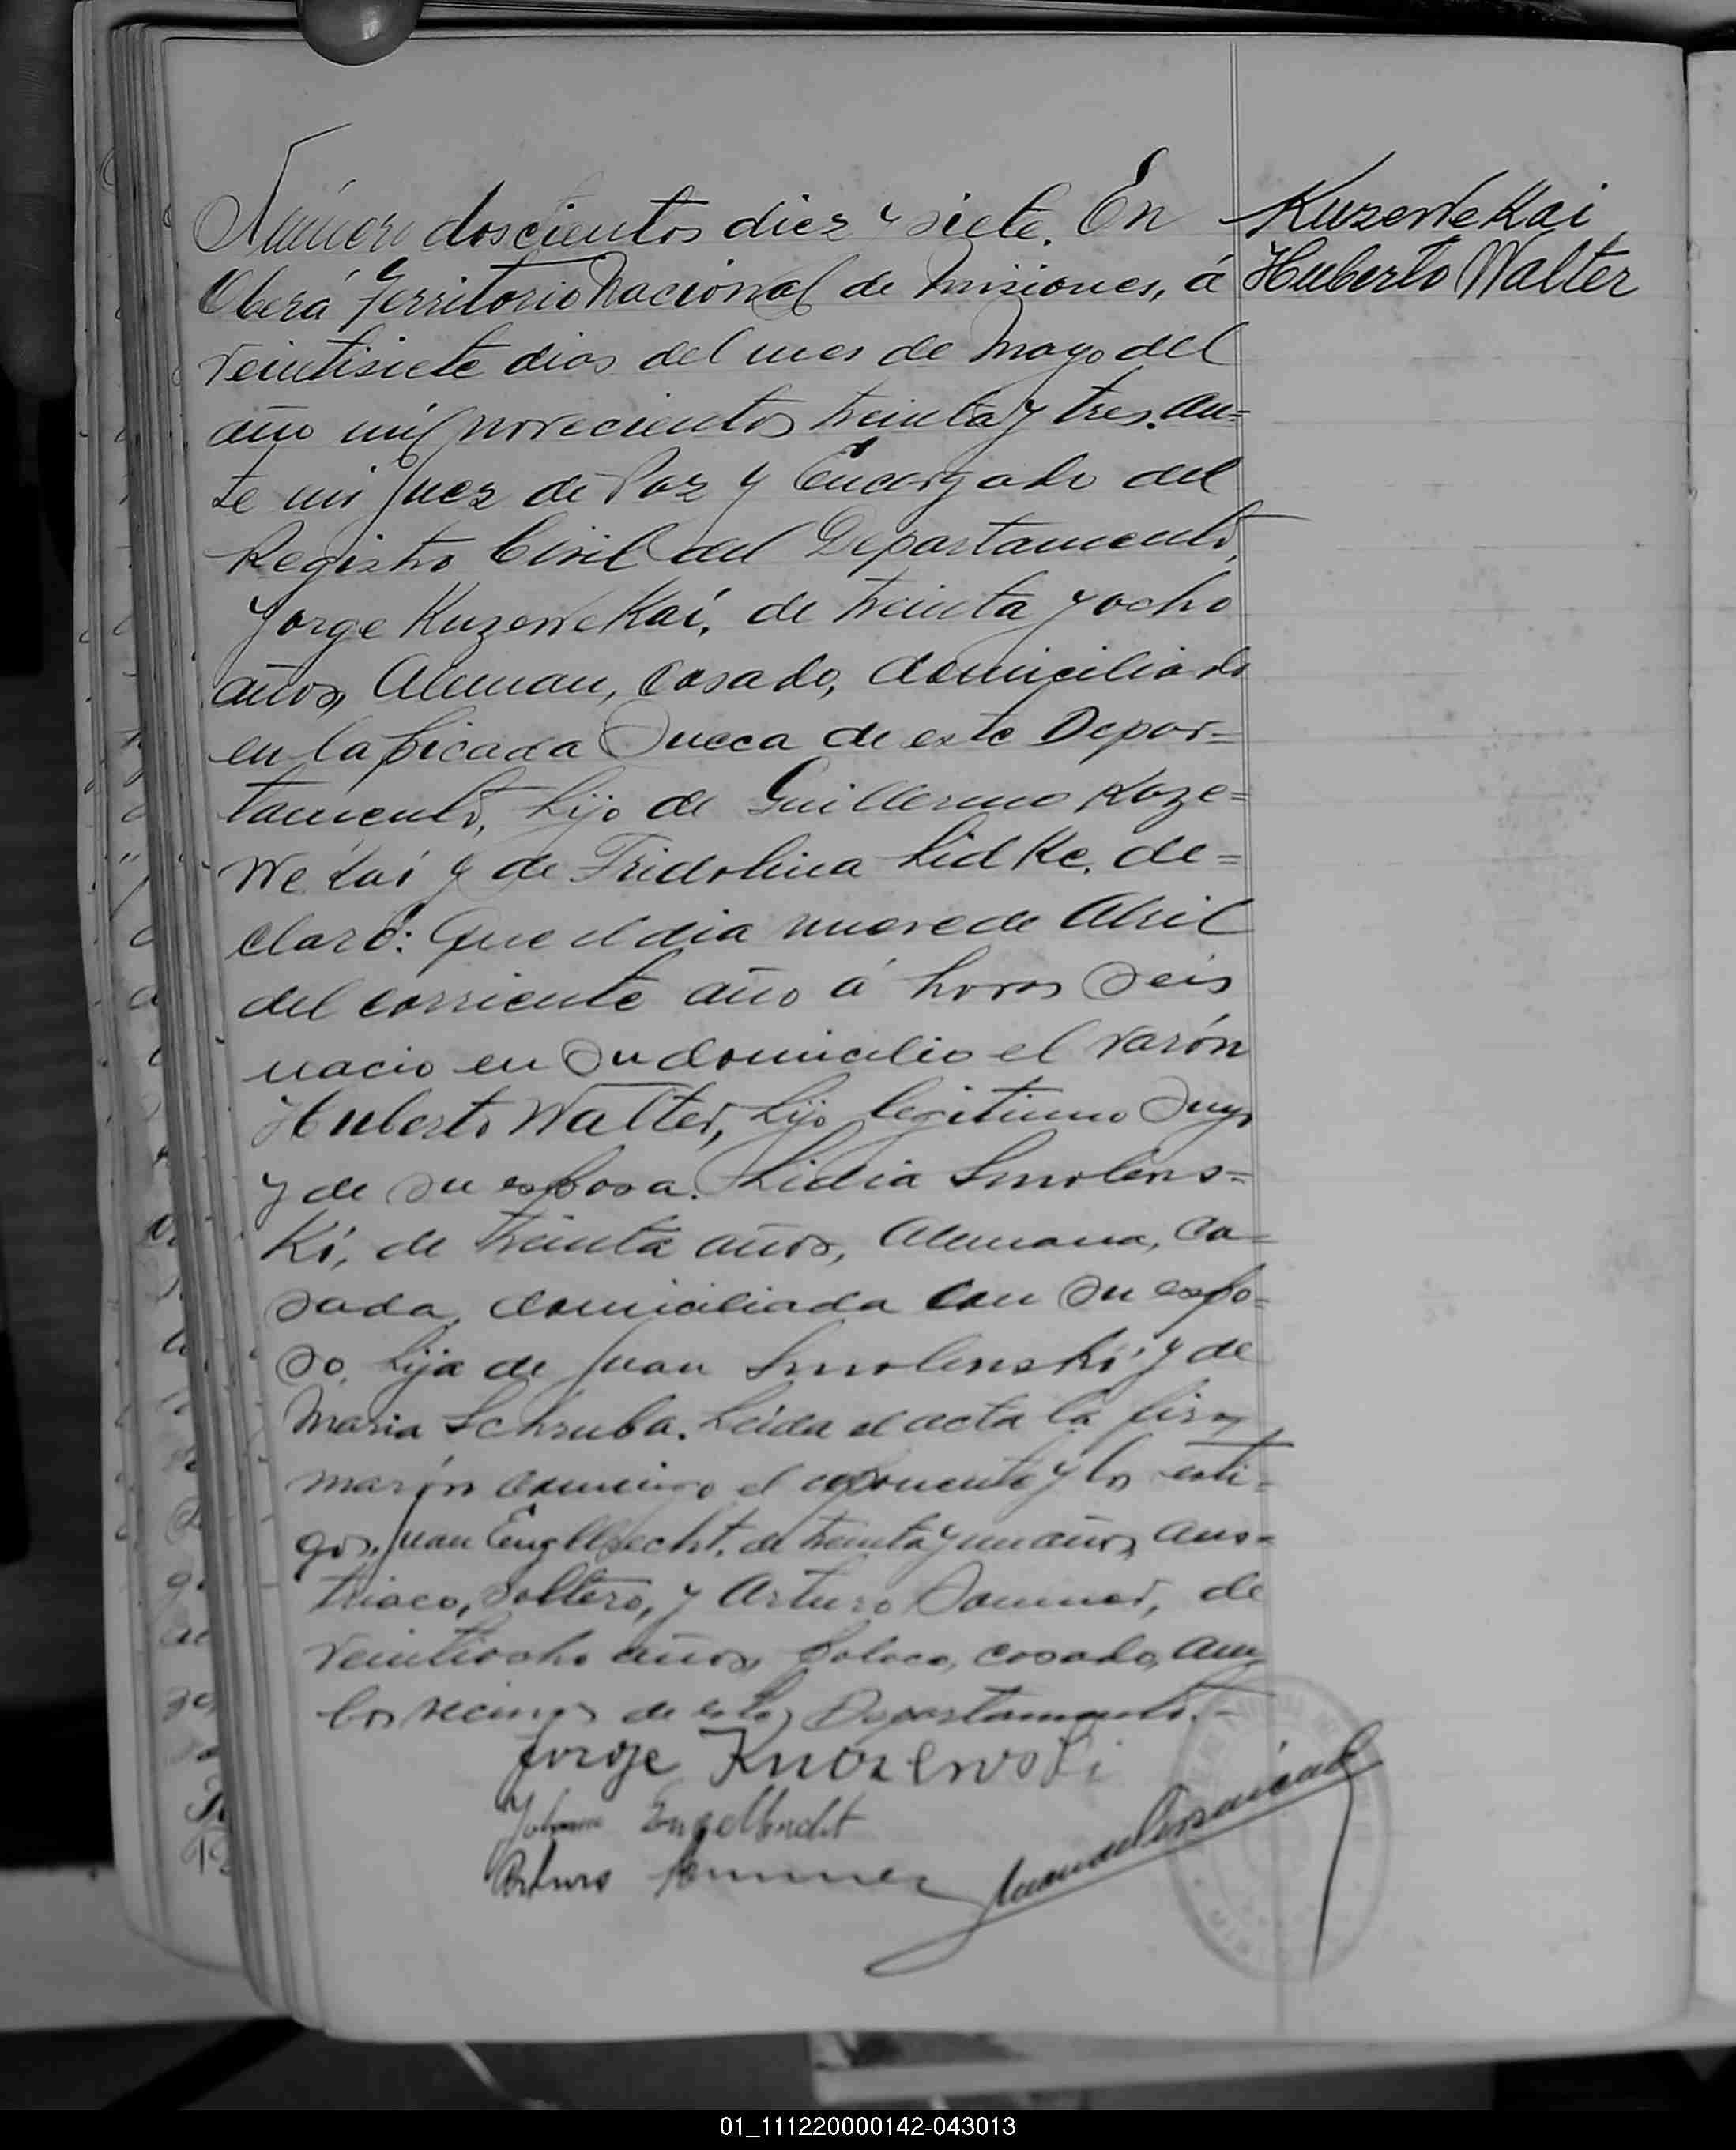 Kuzewekai
Huberto Walter
Número doscientos diez y siete. En
Oberá Territorio Nacional de Misiones, á
veintisiete dias del mes de Mayo del
año mil novecientos treinta y tres. An=
te mi Juez de Paz y Encargado del
Registro Civil del Departamento,
Jorge Kuzewekai, de treinta y ocho
años, Aleman, casado, domiciliado
en la picada Sueca de este Depar=
tamento, hijo de Guillermo Koze=
wekai y de Fridolina Lidke, de=
claró: Que el dia nueve de Abril
del corriente año á horas seis
nacio en su domicilio el varón
Huberto Walter, hijo legitimo suyo
y de su esposa. Lidia Smolens=
ki, de treinta años, Alemana, ca=
sada, domiciliada con su espo=
so, hija de Juan Smolenski y de
Maria Schruba. Leida el acta la fir=
marón conmigo el exponente y los testi=
gos, Juan Engllbrecht, de treinta y un años, aus=
triaco, soltero, y Arturo Sommer, de
veintiocho años, Polaco, casado, am=
bos vecinos de este Departamento.-
Jorge
Johann Engelbrecht
Arturo Sommer
01_111220000142-043013